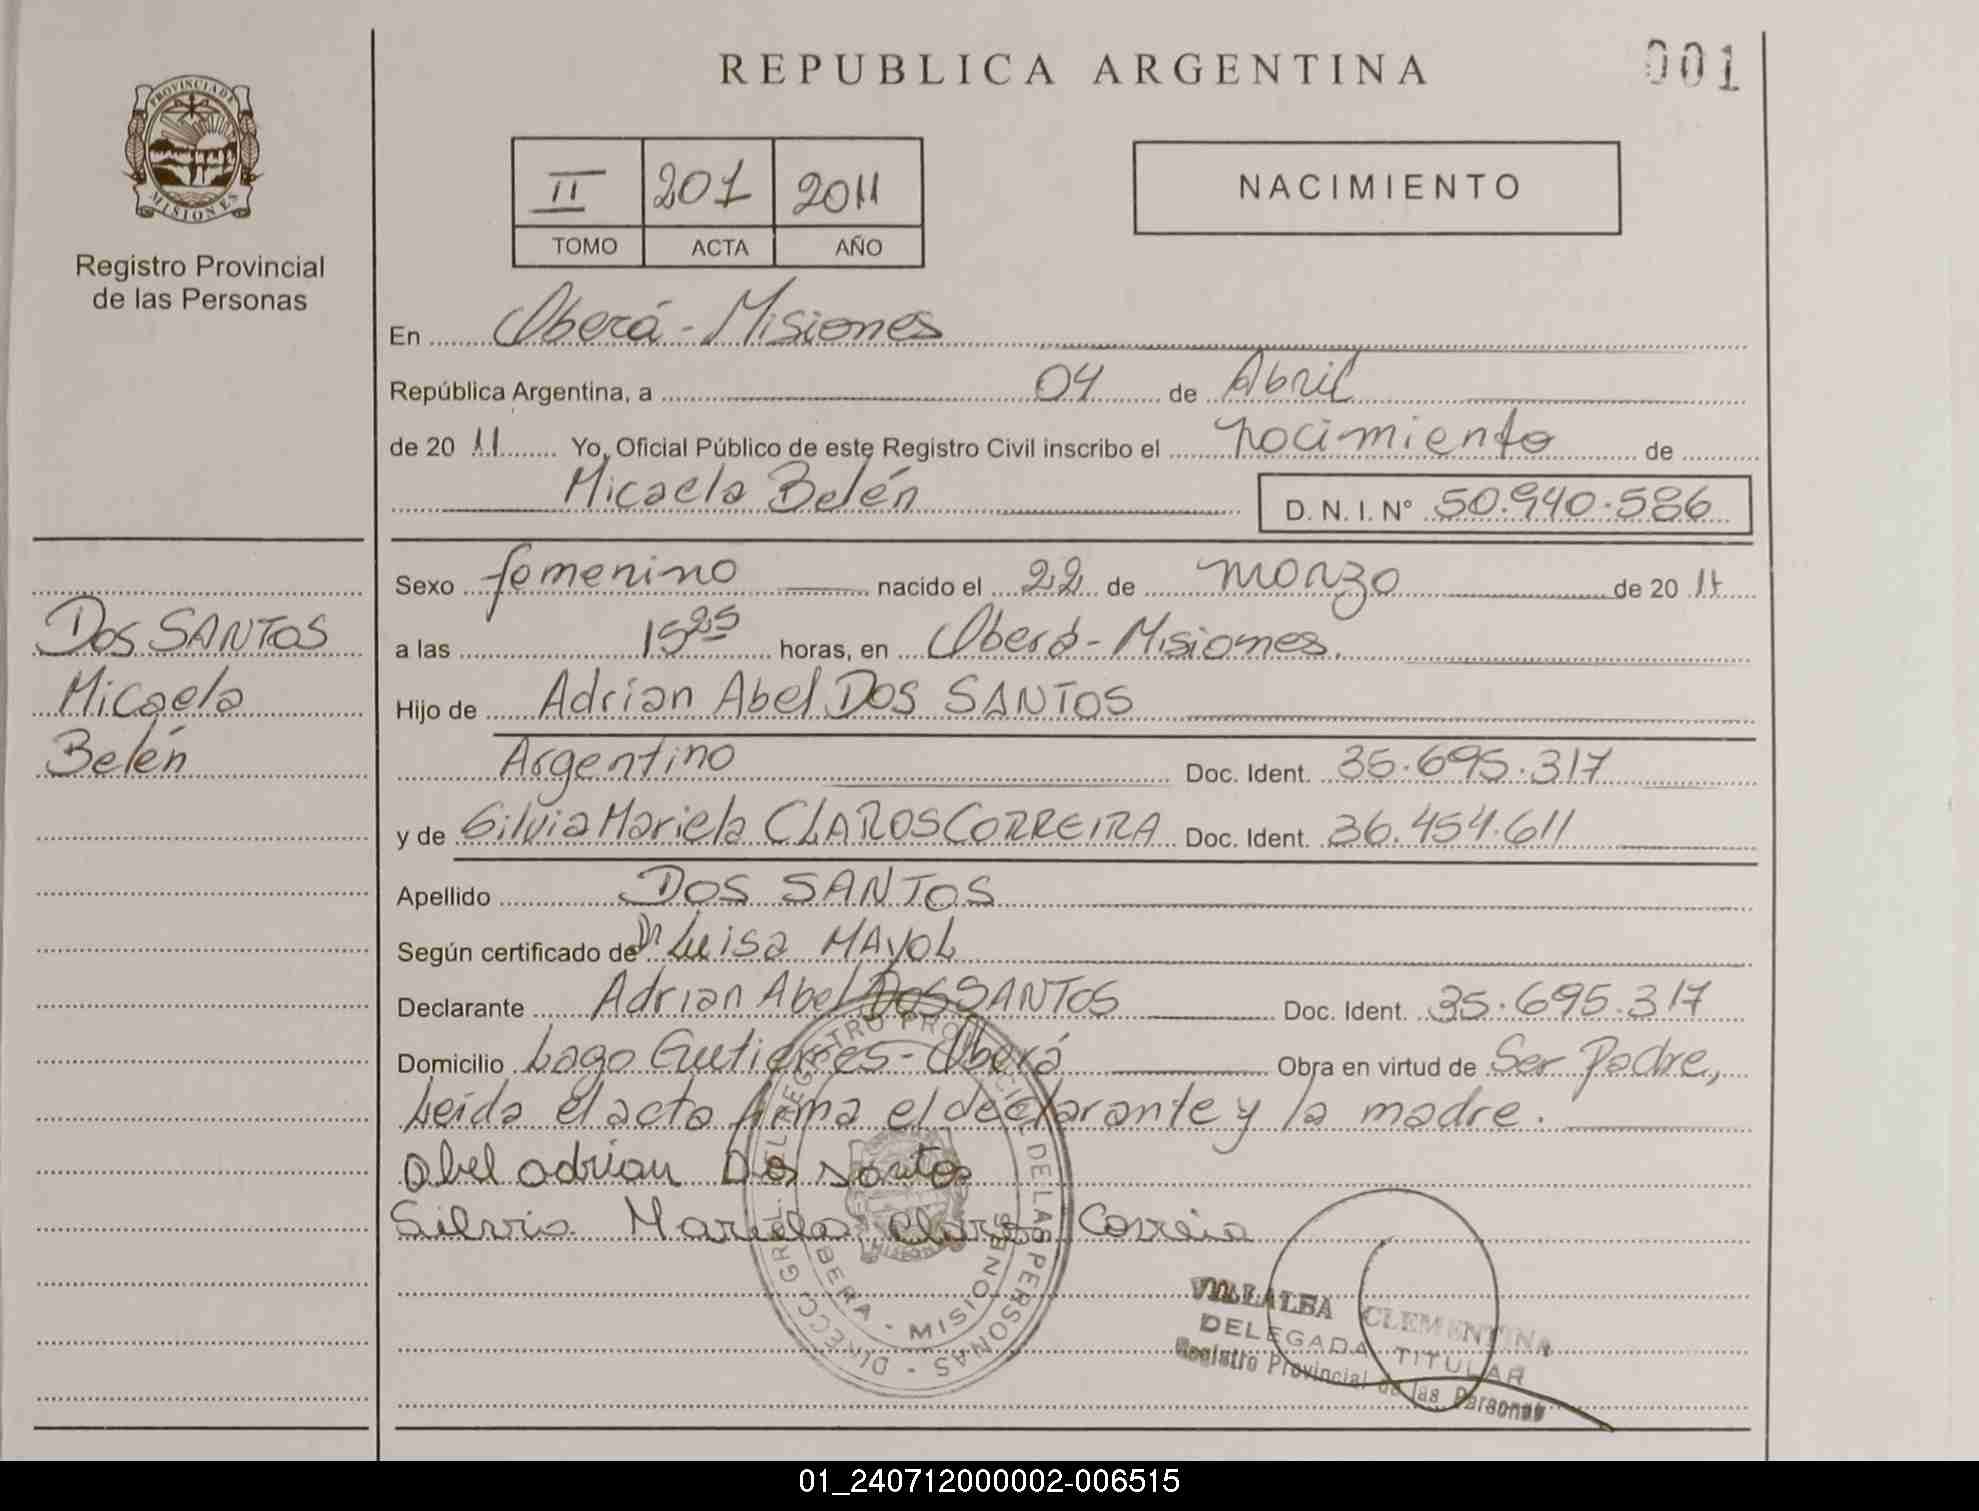 REPUBLICA ARGENTINA
001
PROVINCIA DE
MISIONES
Registro Provincial
de las Personas
II 201 2011
TOMO ACTA AÑO
NACIMIENTO
En Oberá - Misiones
República Argentina, a 04 de Abril
de 20 11 Yo, Oficial Público de este Registro Civil inscribo el nacimiento de
Micaela Belén D. N. I. N° 50.940.586
Sexo femenino nacido el 22 de marzo de 20 11
a las 15 25 horas, en Oberá - Misiones.
Hijo de Adrian Abel DOS SANTOS
Argentino Doc. Ident. 35.695.317
y de Silvia Mariela CLAROS CORREIRA Doc. Ident. 36.454.611
Apellido DOS SANTOS
Según certificado de Dr Luisa MAYOL
Declarante Adrian Abel DOS SANTOS Doc. Ident. 35.695.317
Domicilio Lago Gutierres - Oberá Obra en virtud de Ser Padre,
Leída el acta firma el declarante y la madre.
Abel adrian Dos santos
Silvia Mariela Claros Correia
Dos SANTOS
Micaela
Belén
DIRECC. GRAL. DEL REGISTRO PROVINCIAL DE LAS PERSONAS
OBERA - MISIONES
MISIONES
VILLALBA CLEMENTINA
DELEGADA TITULAR
Registro Provincial de las Personas
01_240712000002-006515